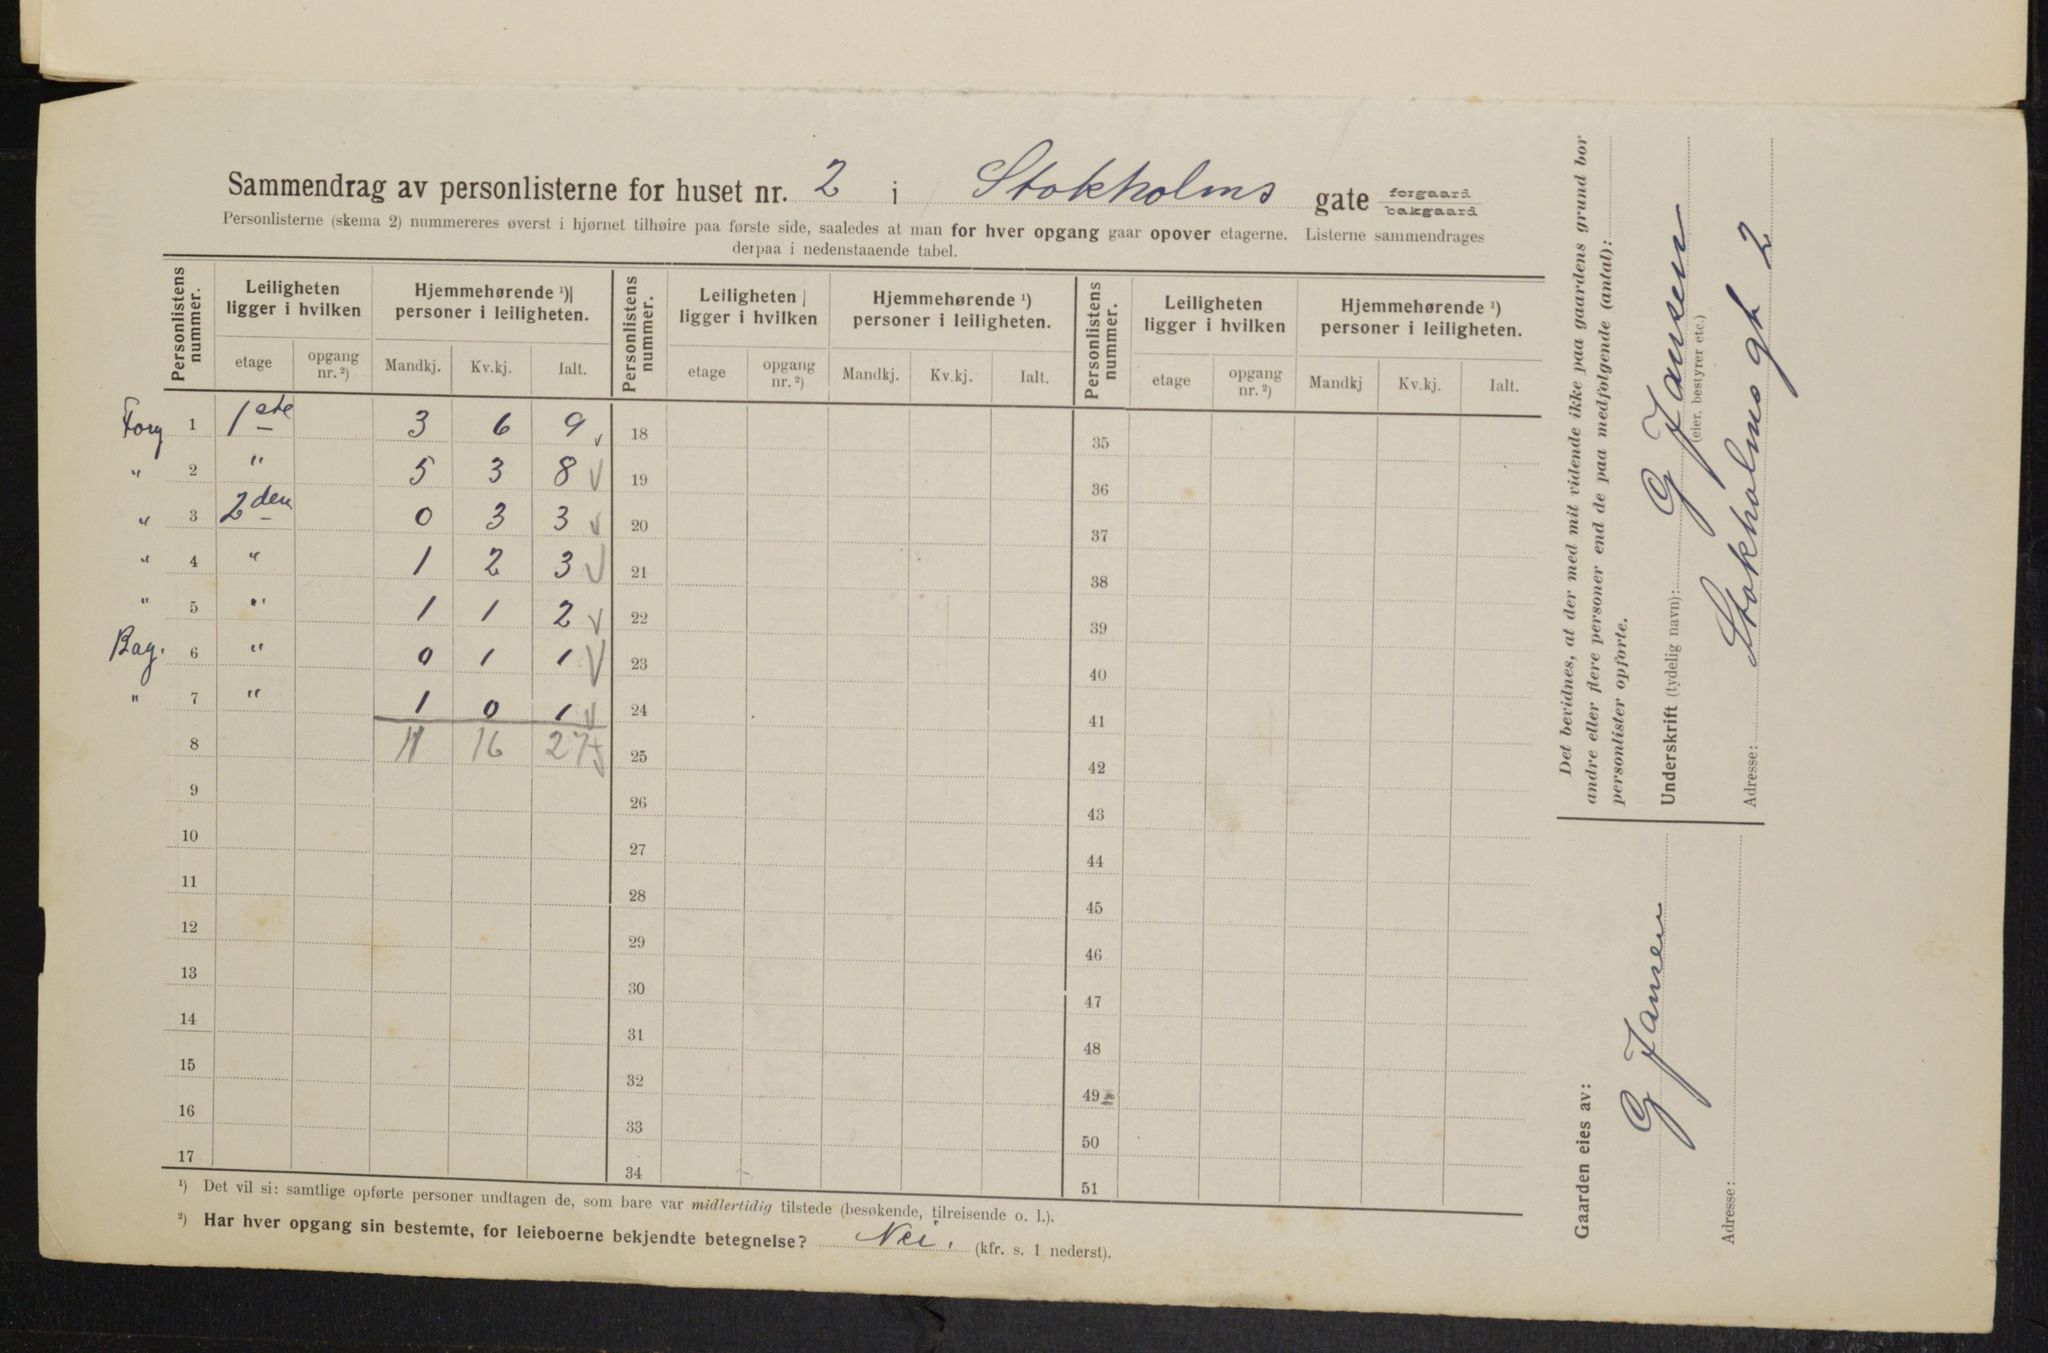 Sammendrag av personlisterne for huset nr. 2 i Stokholms gate forgaard bakgaard
Personlisterne (skema 2) nummereres øverst i hjørnet tilhøire paa første side, saaledes at man for hver opgang gaar opover etagerne. Listerne sammendrages
derpaa i nedenstaaende tabel.
Personlistens nummer. Leiligheten ligger i hvilken Hjemmehørende ¹) personer i leiligheten. Personlistens nummer. Leiligheten ligger i hvilken Hjemmehørende ¹) personer i leiligheten. Personlistens nummer. Leiligheten ligger i hvilken Hjemmehørende ¹) personer i leiligheten.
etage opgang nr. ²) Mandkj. Kv.kj. Ialt. etage opgang nr. ²) Mandkj. Kv.kj. Ialt. etage opgang nr. ²) Mandkj Kv.kj. Ialt.
Forg 1 1ste 3 6 9 18 35
" 2 " 5 3 8 19 36
" 3 2den 0 3 3 20 37
" 4 " 1 2 3 21 38
" 5 " 1 1 2 22 39
Bag. 6 " 0 1 1 23 40
" 7 " 1 0 1 24 41
8 11 16 27 25 42
9 26 43
10 27 44
11 28 45
12 29 46
13 30 47
14 31 48
15 32 49
16 33 50
17 34 51
¹) Det vil si: samtlige opførte personer undtagen de, som bare var midlertidig tilstede (besøkende, tilreisende o. l.).
²) Har hver opgang sin bestemte, for leieboerne bekjendte betegnelse? Nei. (kfr. s. 1 nederst).
Det bevidnes, at der med mit vidende ikke paa gaardens grund bor
andre eller flere personer end de paa medfølgende (antal):
personlister opførte.
Underskrift (tydelig navn): G Jansen
(eier, bestyrer etc.)
Adresse: Stokholms gt 2
Gaarden eies av:
G Jansen
Adresse: